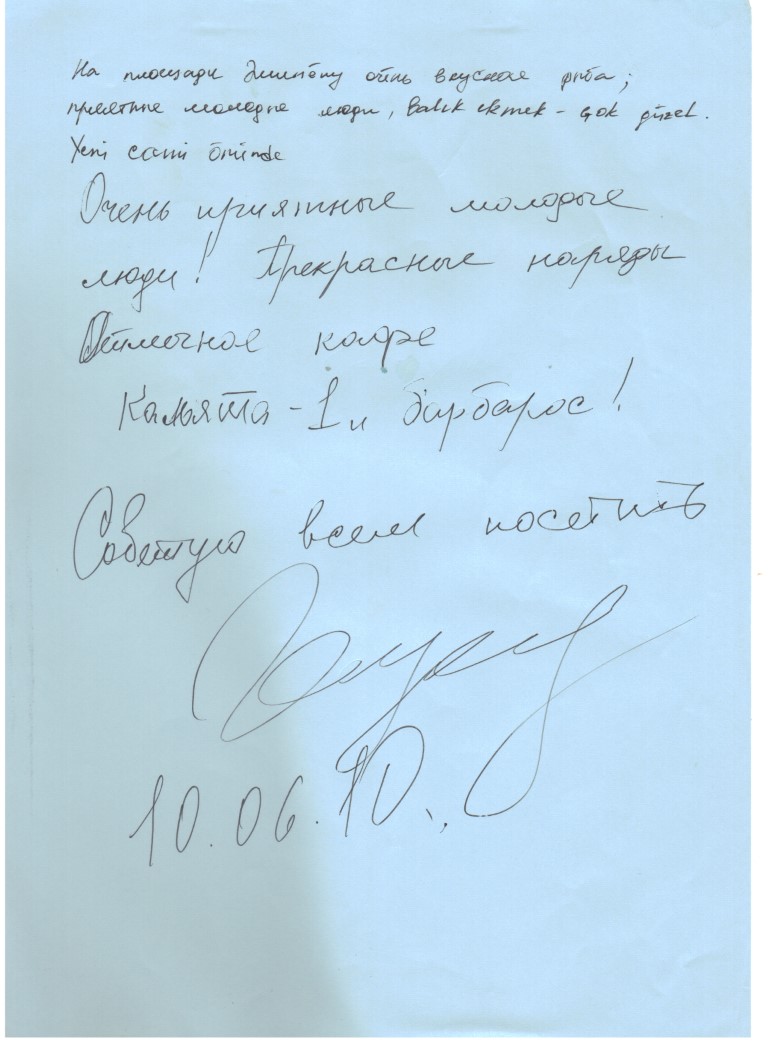 На площади Эминёню очень вкусная рыба;
приятные молодые люди, Balık ekmek - çok güzel.
Yeni cami önünde
Очень приятные молодые
люди! Прекрасные наряды
Отличное кафе
Кальята - 1 и барбарос!
Советую всем посетить
10.06.10.